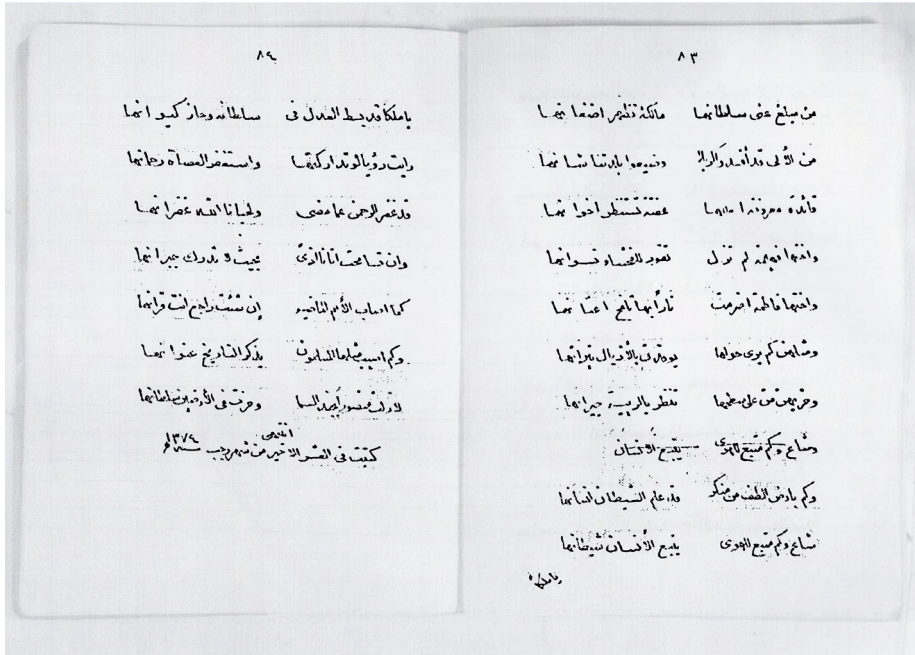 ٨٣
من مبلغ عني سلطانها مالكة تنظم اضغانها
من الألى قد أفسدوا كربلا وضيعوا بلدتنا شانها
قائدة معروفة عفتة تستنظر اخوانها
واختها فهيمة لم تزل تقود للفحشاء نسوانها
واختها فاطمة اضرمت ناراً بها تلفح اعنانها
ومثلهن كم يرى حولها يوقدن بالأذيال نيرانها
وحزبهن من على سطحها تنظر بالريبة جيرانها
وشاع وكم متبع للهوى يتبع الأنسان
وكم بارض الطف من منكر قد علم الشيطان انسانها
شاع وكم متبع للهوى يتبع الأنسان شيطانها
يا ملكا
٨٤
يا ملكا قد بسط العدل في سلطانه وحاز كيوانها
رأيت رؤيا لو تداركتها واستغفر العصاة رحمانها
قد غفر الرحمن عما مضى ولحيانا الله غفرانها
وان تسامحت اتانا الذي بحيث لا تدرك جبرانها
كما اصاب الأمم الماضيه إن شئت راجع انت قرآنها
وكم اصيب مثلها المسلمون يذكر التاريخ عنوانها
لا زلت منصور السما وحزت في الأرضين سلطانها
انتهى
كتبت في العشر الأخير من شهر رجب سنة ١٣٧٤